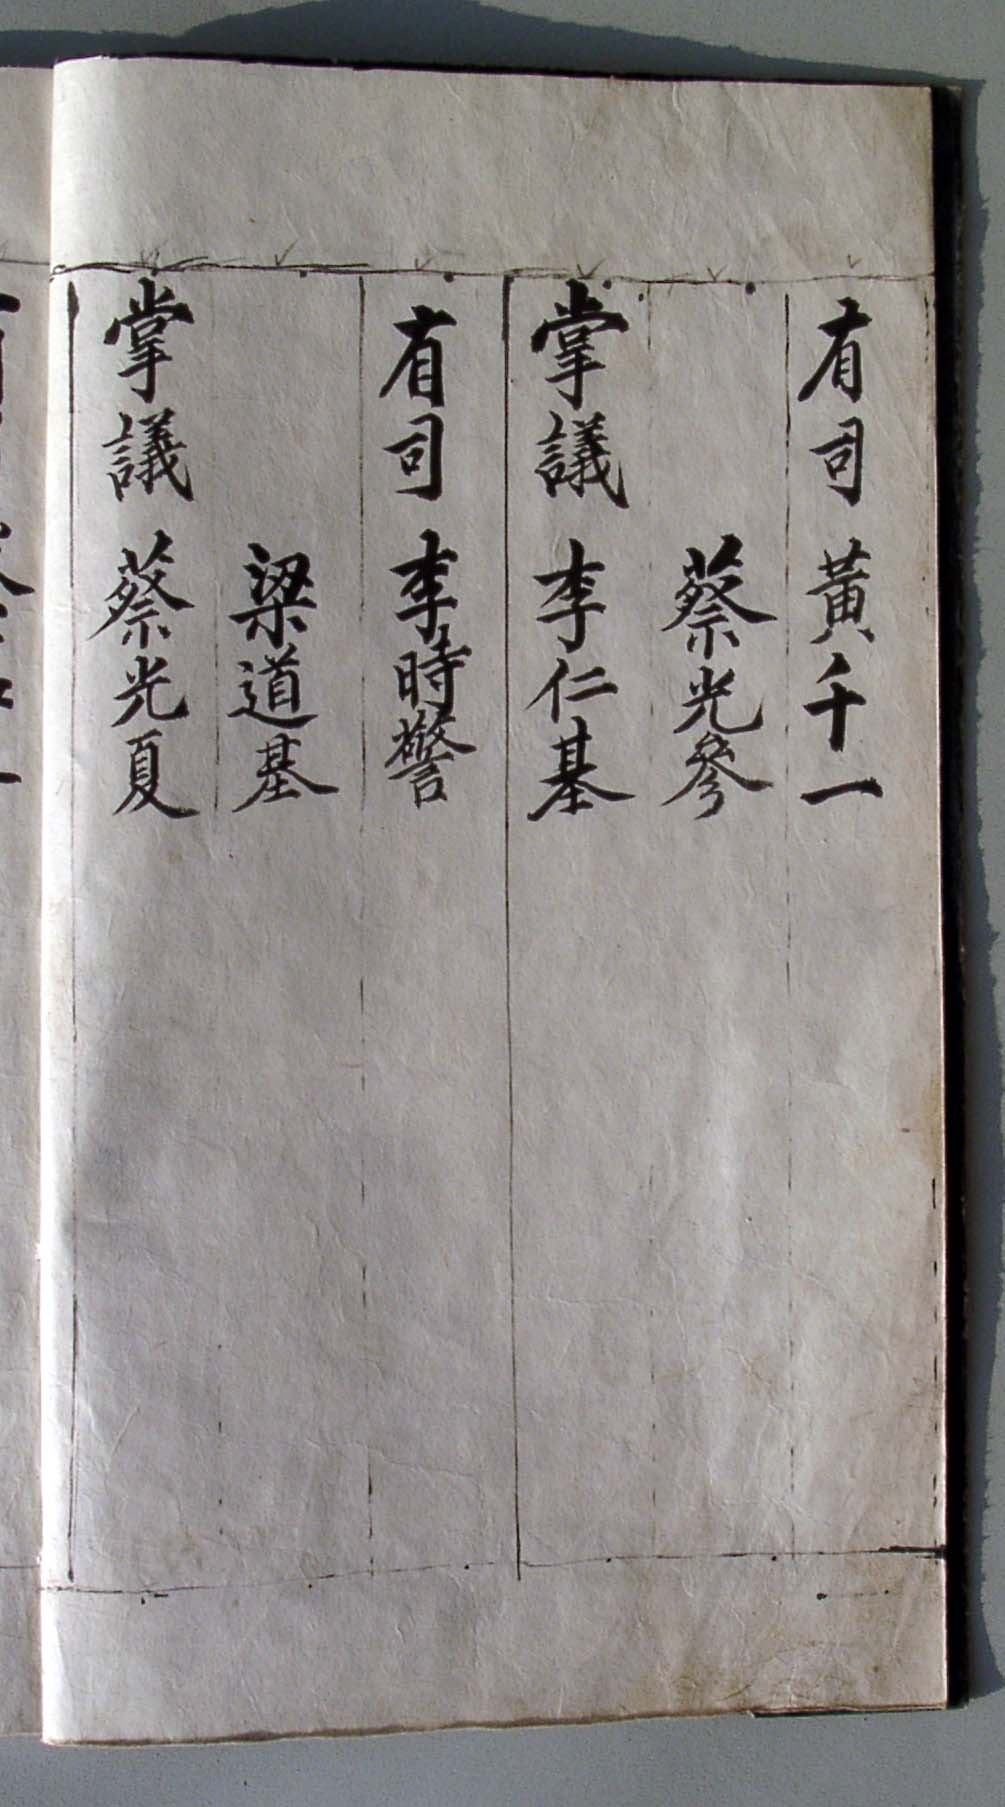 有司 黃千一
蔡光參
掌議 李仁基
有司 李時警
梁道基
掌議 蔡光夏